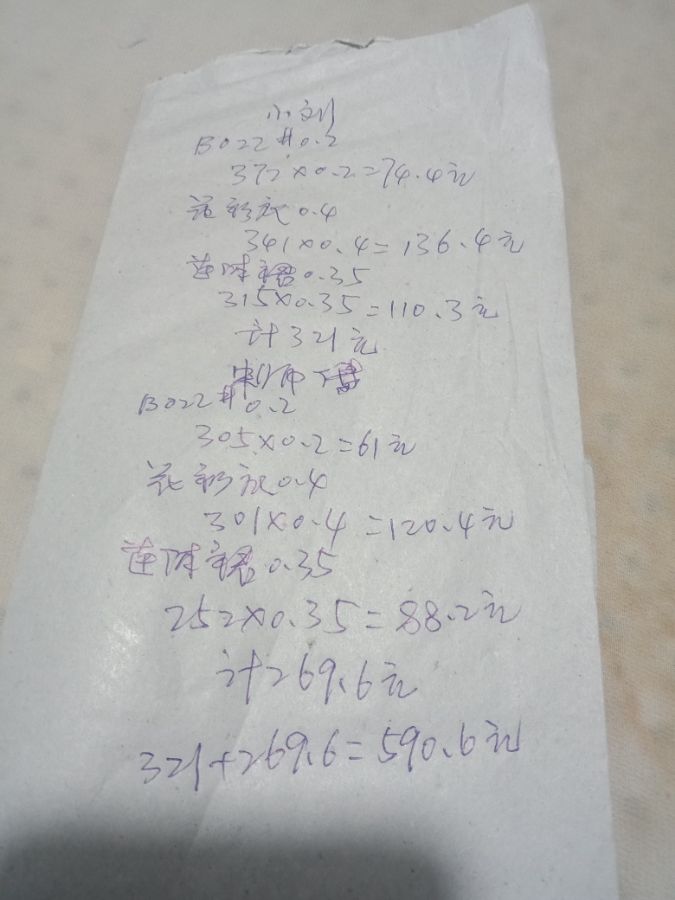 小刘
B022#0.2
372×0.2=74.4元
花彩衣0.4
341×0.4=136.4元
莲0.35
315×0.35=110.3元
计321元
B022#0.2
305×0.2=61元
花彩衣0.4
301×0.4=120.4元
莲0.35
252×0.35=88.2元
计269.6元
321+269.6=590.6元